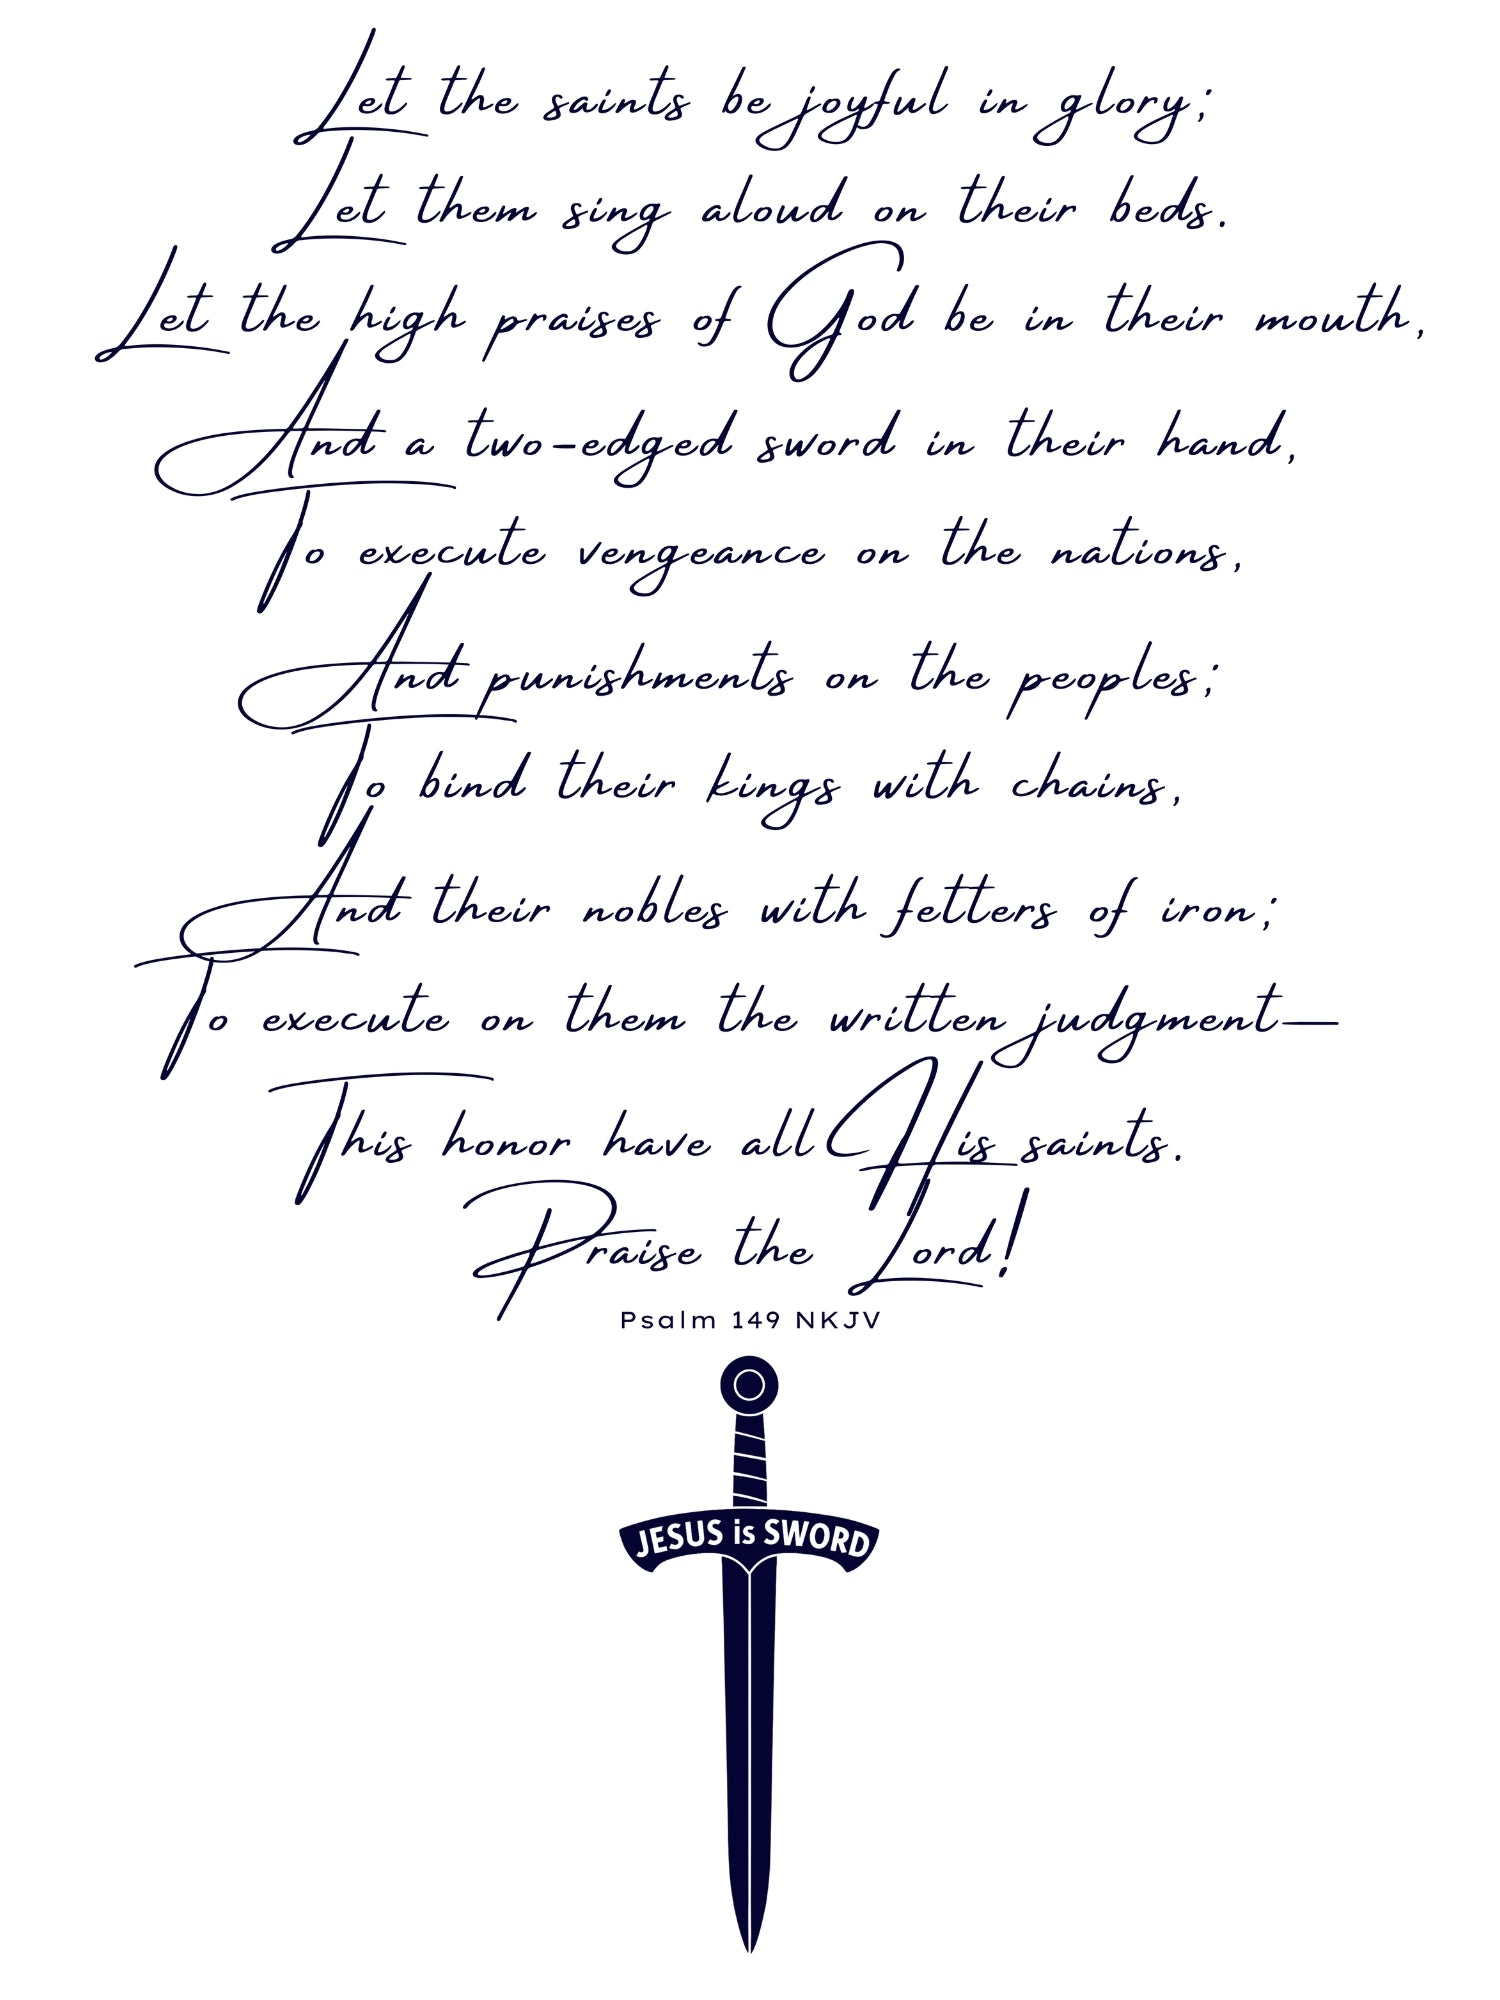 Let the saints be joyful in glory;
Let them sing aloud on their beds.
Let the high praises of God be in their mouth,
And a two-edged sword in their hand,
To execute vengeance on the nations,
And punishments on the peoples;
To bind their kings with chains,
And their nobles with fetters of iron;
To execute on them the written judgment—
This honor have all His saints.
Praise the Lord!
Psalm 149 NKJV
JESUS is SWORD